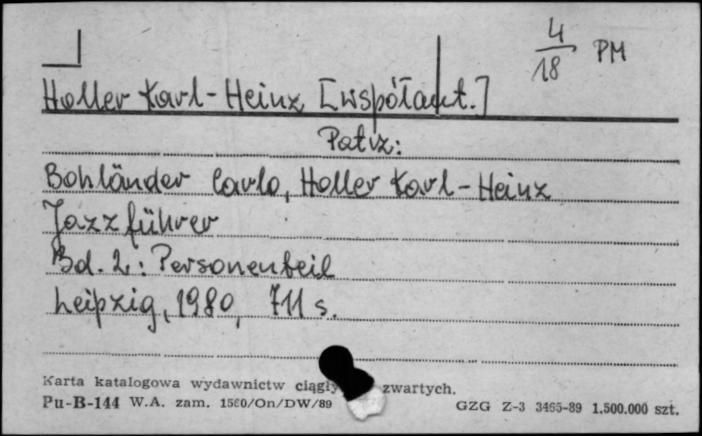 4
18 PM
Holler Karl-Heinz [współaut.]
Patrz:
Bohländer Carlo, Holler Karl-Heinz
Jazzführer
Bd. 2: Personenteil
Leipzig, 1980, 711 s.
Karta katalogowa wydawnictw ciągły zwartych.
Pu-B-144 W.A. zam. 1560/On/DW/89
GZG Z-3 3465-89 1.500.000 szt.